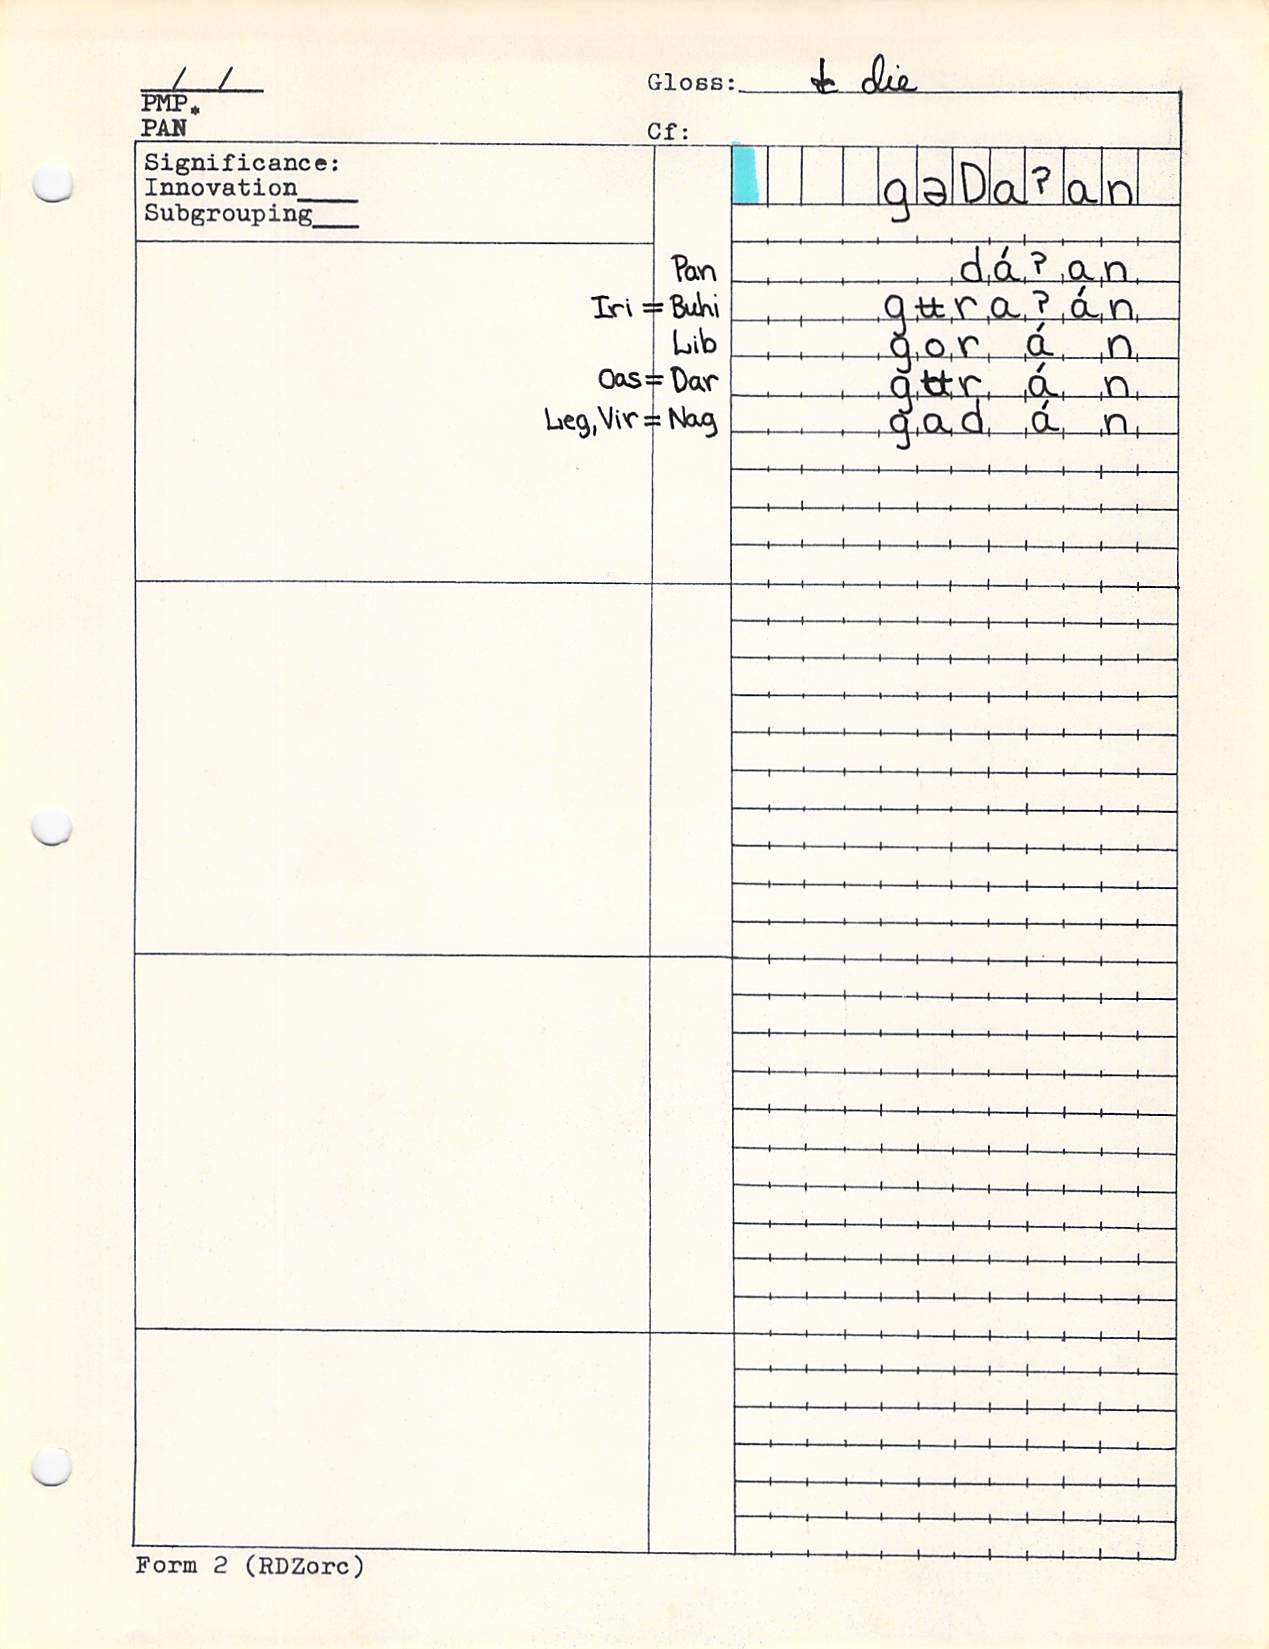 / /
Gloss: to die
PMP*
PAN
Cf:
Significance:
Innovation____
Subgrouping___
gəDaʔan
Pan dáʔan
Iri = Buhi gʉraʔán
Lib gorán
Oas = Dar gʉrán
Leg, Vir = Nag gadán
Form 2 (RDZorc)